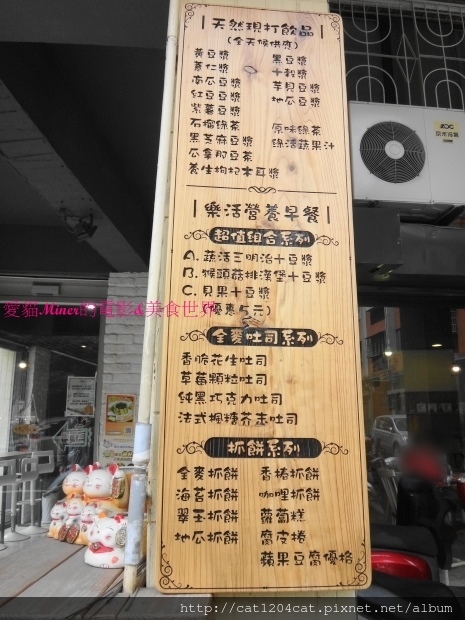 天然現打飲品
(全天候供應)
黃豆漿
薏仁漿
南瓜豆漿
紅豆豆漿
紫薯豆漿
石榴綠茶
黑芝麻豆漿
瓜拿那豆茶
養生枸杞木耳漿
黑豆漿
十穀漿
芋貝豆漿
地瓜豆漿
原味綠茶
綠活蔬果汁
樂活營養早餐
超值組合系列
A.蔬活三明治+豆漿
B.猴頭菇排漢堡+豆漿
C.貝果+豆漿
(優惠5元)
全麥吐司系列
香脆花生吐司
草莓顆粒吐司
純黑巧克力吐司
法式楓糖芥末吐司
抓餅系列
全麥抓餅
海苔抓餅
翠玉抓餅
地瓜抓餅
香椿抓餅
咖哩抓餅
蘿蔔糕
腐皮捲
蘋果豆腐優格
愛貓Miner的電影&美食世界
http://cat1204cat.pixnet.net/album